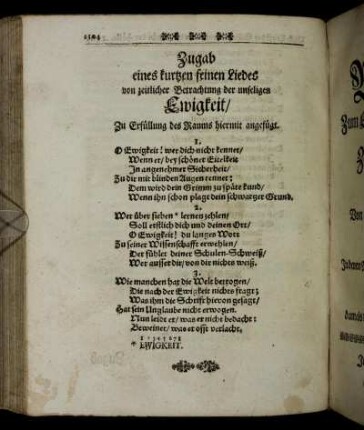 Zugab
eines kurtzen feinen Liedes
von zeitlicher Betrachtung der unseligen
Ewigkeit/
Zu Erfüllung des Raums hiermit angefügt.
1.
O Ewigkeit! wer dich nicht kennet/
Wenn er/ bey schöner Eitelkeit
In angenehmer Sicherheit/
Zu dir mit blinden Augen rennet:
Dem wird dein Grimm zu späte kund/
Wenn ihn schon plagt dein schwartzer Grund.
2.
Wer über sieben * lernen zehlen/
Soll erstlich dich und deinen Ort/
O Ewigkeit! du langes Wort
Zu seiner Wissenschafft erwehlen/
Der fühlet deiner Schulen-Schweiß/
Wer ausser dir/ von dir nichts weiß.
3.
Wie manchen hat die Welt betrogen/
Die nach der Ewigkeit nichts fragt;
Was ihm die Schrifft hiervon gesagt/
Hat sein Unglaube nicht erwogen.
Nun leidet er/ was er nicht bedacht:
Beweinet/ was er offt verlacht.
* EWIGKEIT.
Von